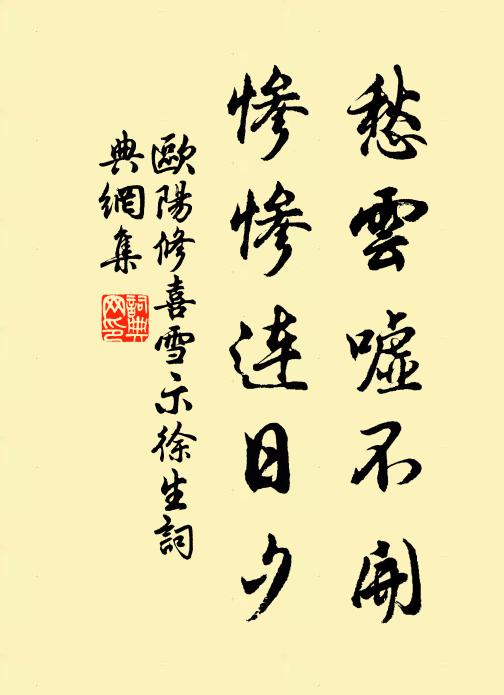 愁雲噓不開
慘慘連日夕
歐陽修喜雪示徐生詞
典網集
詞典網印